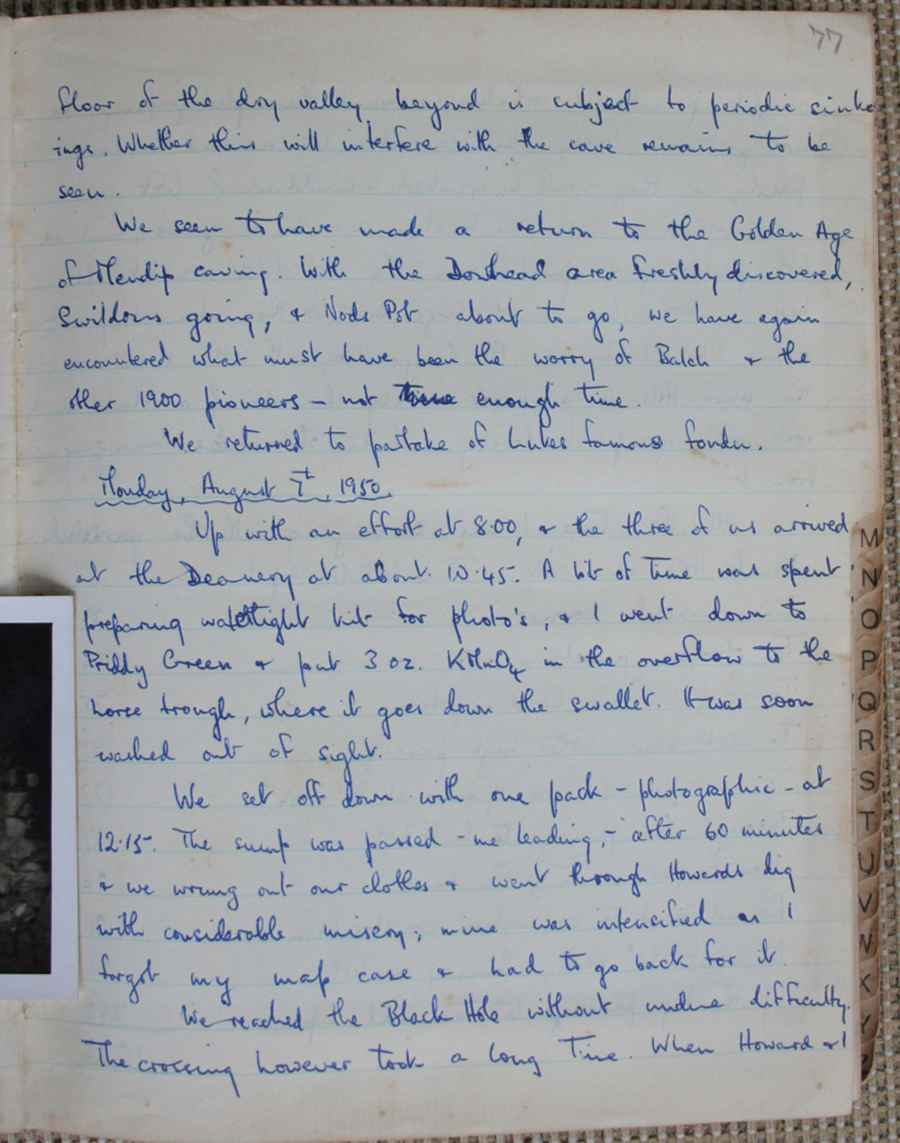 77
floor of the dry valley beyond is subject to periodic sink-
ings. Whether this will interfere with the cave remains to be
seen.
We seem to have made a return to the Golden Age
of Mendip caving. With the Dowhead area freshly discovered,
Swildons going, & Nods Pot about to go, we have again
encountered what must have been the worry of Balch & the
other 1900 pioneers - not enough time.
We returned to partake of Lukes famous fondu.
Monday, August 7t, 1950.
Up with an effort at 8.00, & the three of us arrived
at the Deanery at about 10.45. A bit of time was spent
preparing watertight kit for photo's, & I went down to
Priddy Green & put 3 oz. KMnO4 in the overflow to the
horse trough, where it goes down the swallet. It was soon
washed out of sight.
We set off down with one pack - photographic - at
12.15. The sump was passed - me leading, - after 60 minutes
& we wrung out our clothes & went through Howards dig
with considerable misery; mine was intensified as I
forgot my map case & had to go back for it.
We reached the Black Hole without undue difficulty.
The crossing however took a long time. When Howard & I
M
N
O
P
Q
R
S
T
U
V
W
X
Y